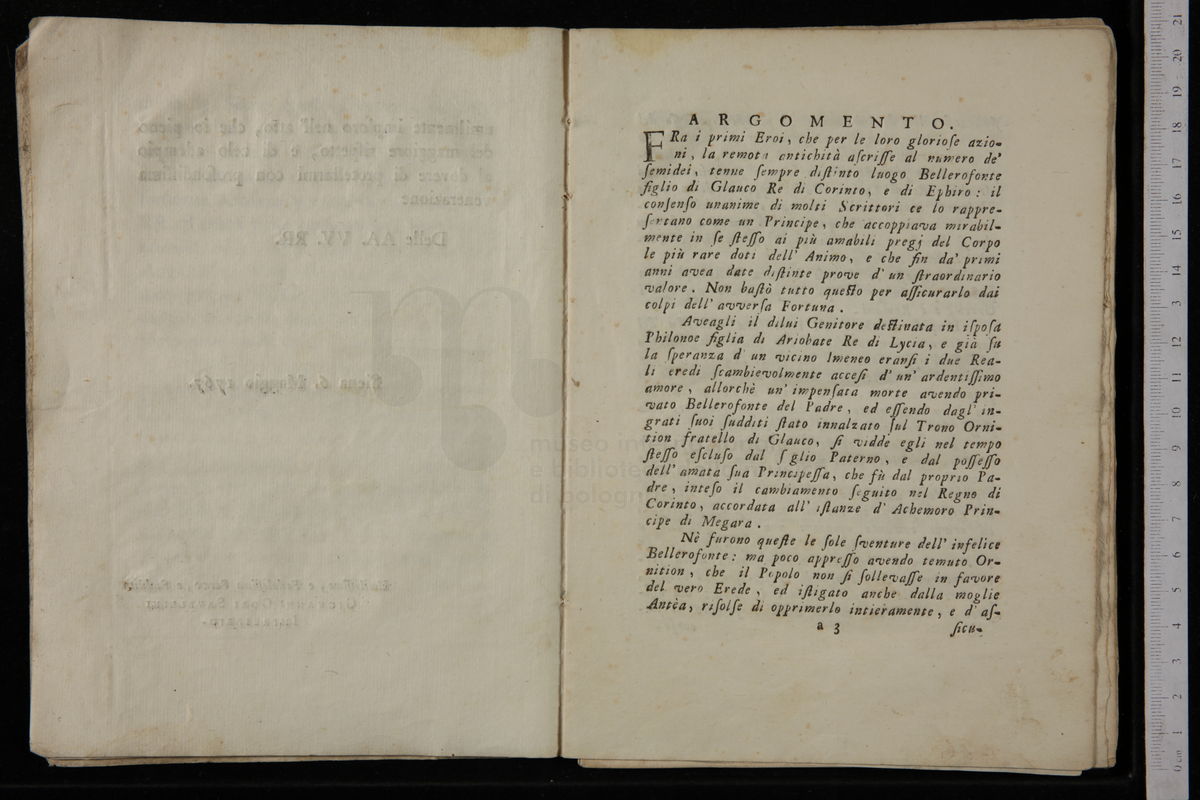 ARGOMENTO.
FRa i primi Eroi, che per le loro glorioſe azio-
ni, la remota antichità aſcriſſe al numero de'
ſemidei, tenne ſempre diſtinto luogo Bellerofonte
figlio di Glauco Re di Corinto, e di Ephiro: il
conſenſo unanime di molti Scrittori ce lo rappre-
ſentano come un Principe, che accoppiava mirabil-
mente in ſe ſteſſo ai più amabili pregj del Corpo
le più rare doti dell' Animo, e che fin da' primi
anni avea date diſtinte prove d' un ſtraordinario
valore. Non baſtò tutto queſto per aſſicurarlo dai
colpi dell' avverſa Fortuna.
Aveagli il dilui Genitore deſtinata in iſpoſa
Philonoe figlia di Ariobate Re di Lycia, e già ſu
la ſperanza d' un vicino Imeneo eranſi i due Rea-
li eredi ſcambievolmente acceſi d' un' ardentiſſimo
amore, allorchè un' impenſata morte avendo pri-
vato Bellerofonte del Padre, ed eſſendo dagl' in-
grati ſuoi ſudditi ſtato innalzato ſul Trono Orni-
tion fratello di Glauco, ſi vidde egli nel tempo
ſteſſo eſcluſo dal ſoglio Paterno, e dal poſſeſſo
dell' amata ſua Principeſſa, che fù dal proprio Pa-
dre, inteſo il cambiamento ſeguito nel Regno di
Corinto, accordata all' iſtanze d' Achemoro Prin-
cipe di Megara.
Nè furono queſte le ſole ſventure dell' infelice
Bellerofonte: ma poco appreſſo avendo temuto Or-
nition, che il Popolo non ſi ſollevaſſe in favore
del vero Erede, ed iſtigato anche dalla moglie
Antèa, riſolſe di opprimerlo intieramente, e d' aſ-
a 3
ſicu-